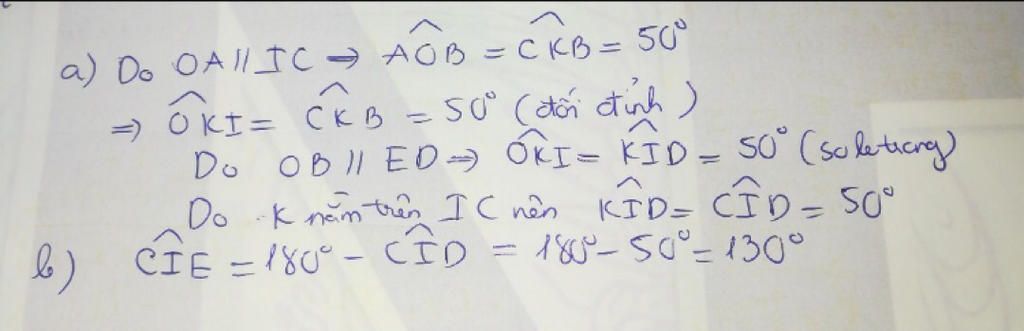 a) Do OA // IC ⇒ AÔB = CK̂B = 50°
⇒ OK̂I = CK̂B = 50° (đối đỉnh)
Do OB // ED ⇒ OK̂I = KÎD = 50° (so le trong)
Do K nằm trên IC nên KÎD = CÎD = 50°
b) CÎE = 180° - CÎD = 180° - 50° = 130°